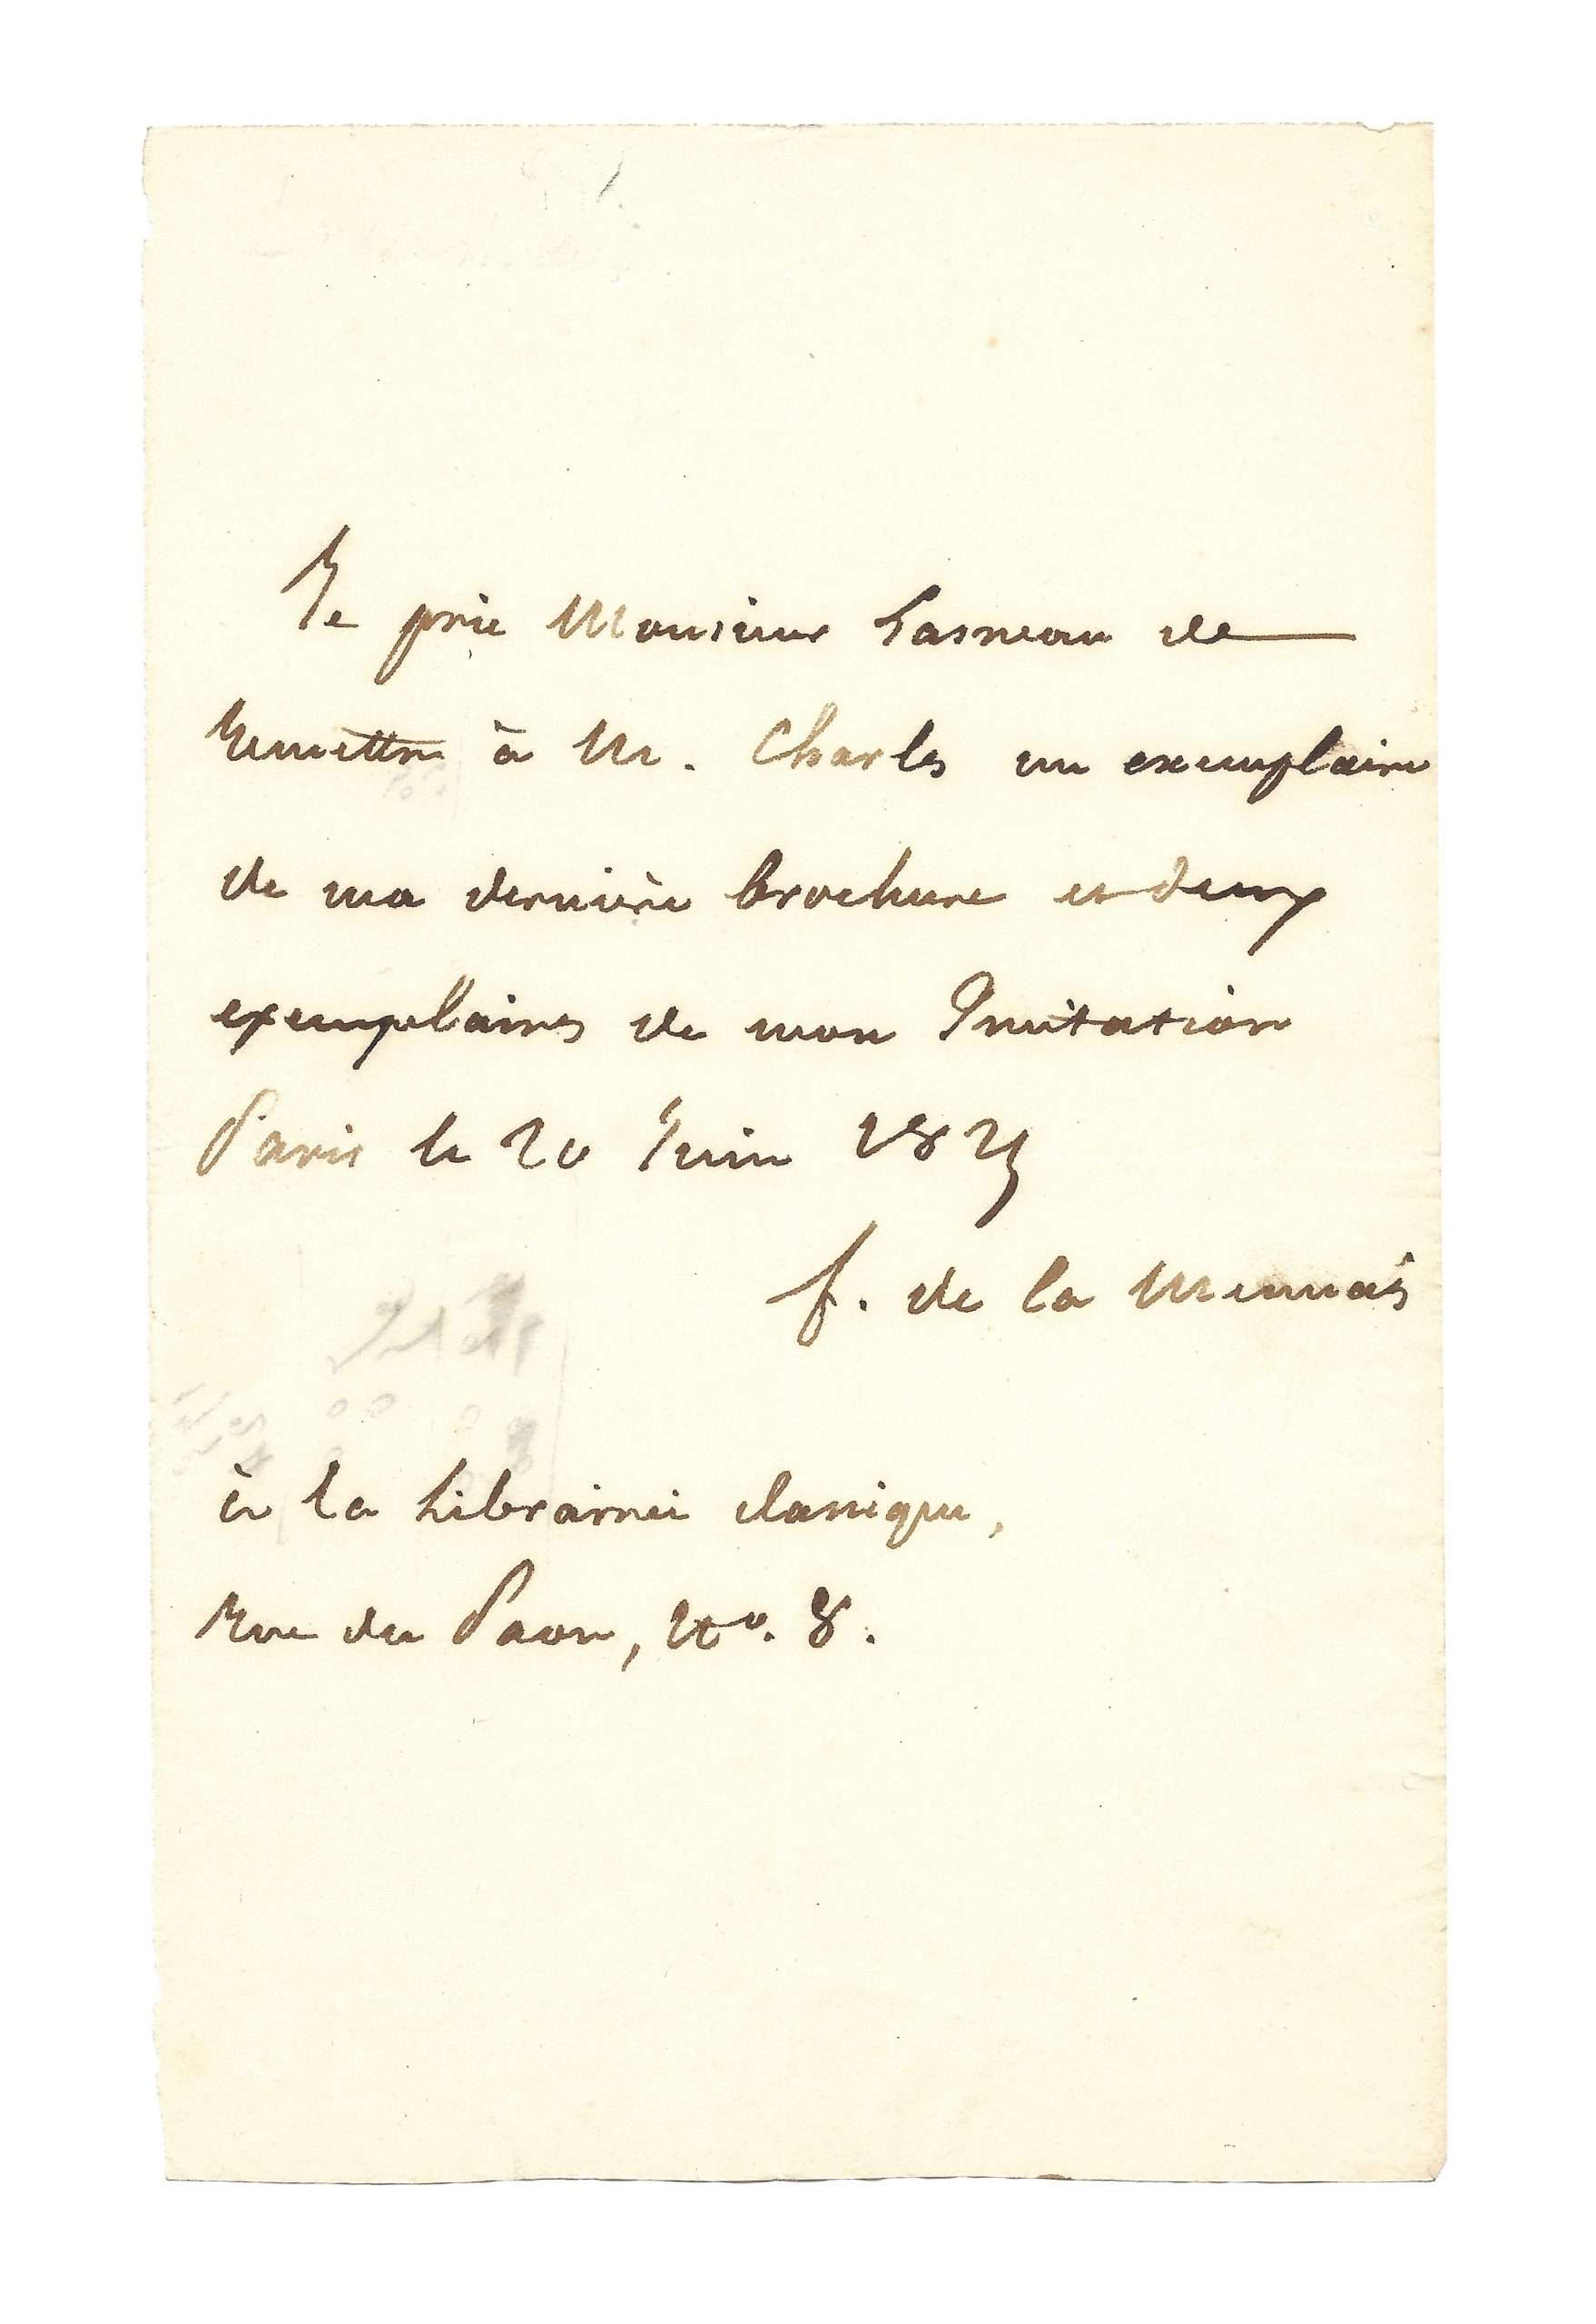 Je prie Monsieur Lasneau de
remettre à M. Charles un exemplaire
de ma dernière brochure et deux
exemplaires de mon Imitation
Paris le 20 Juin 182
f. de la Mennais
à la Librairie classique,
Rue du Paon, No. 8.